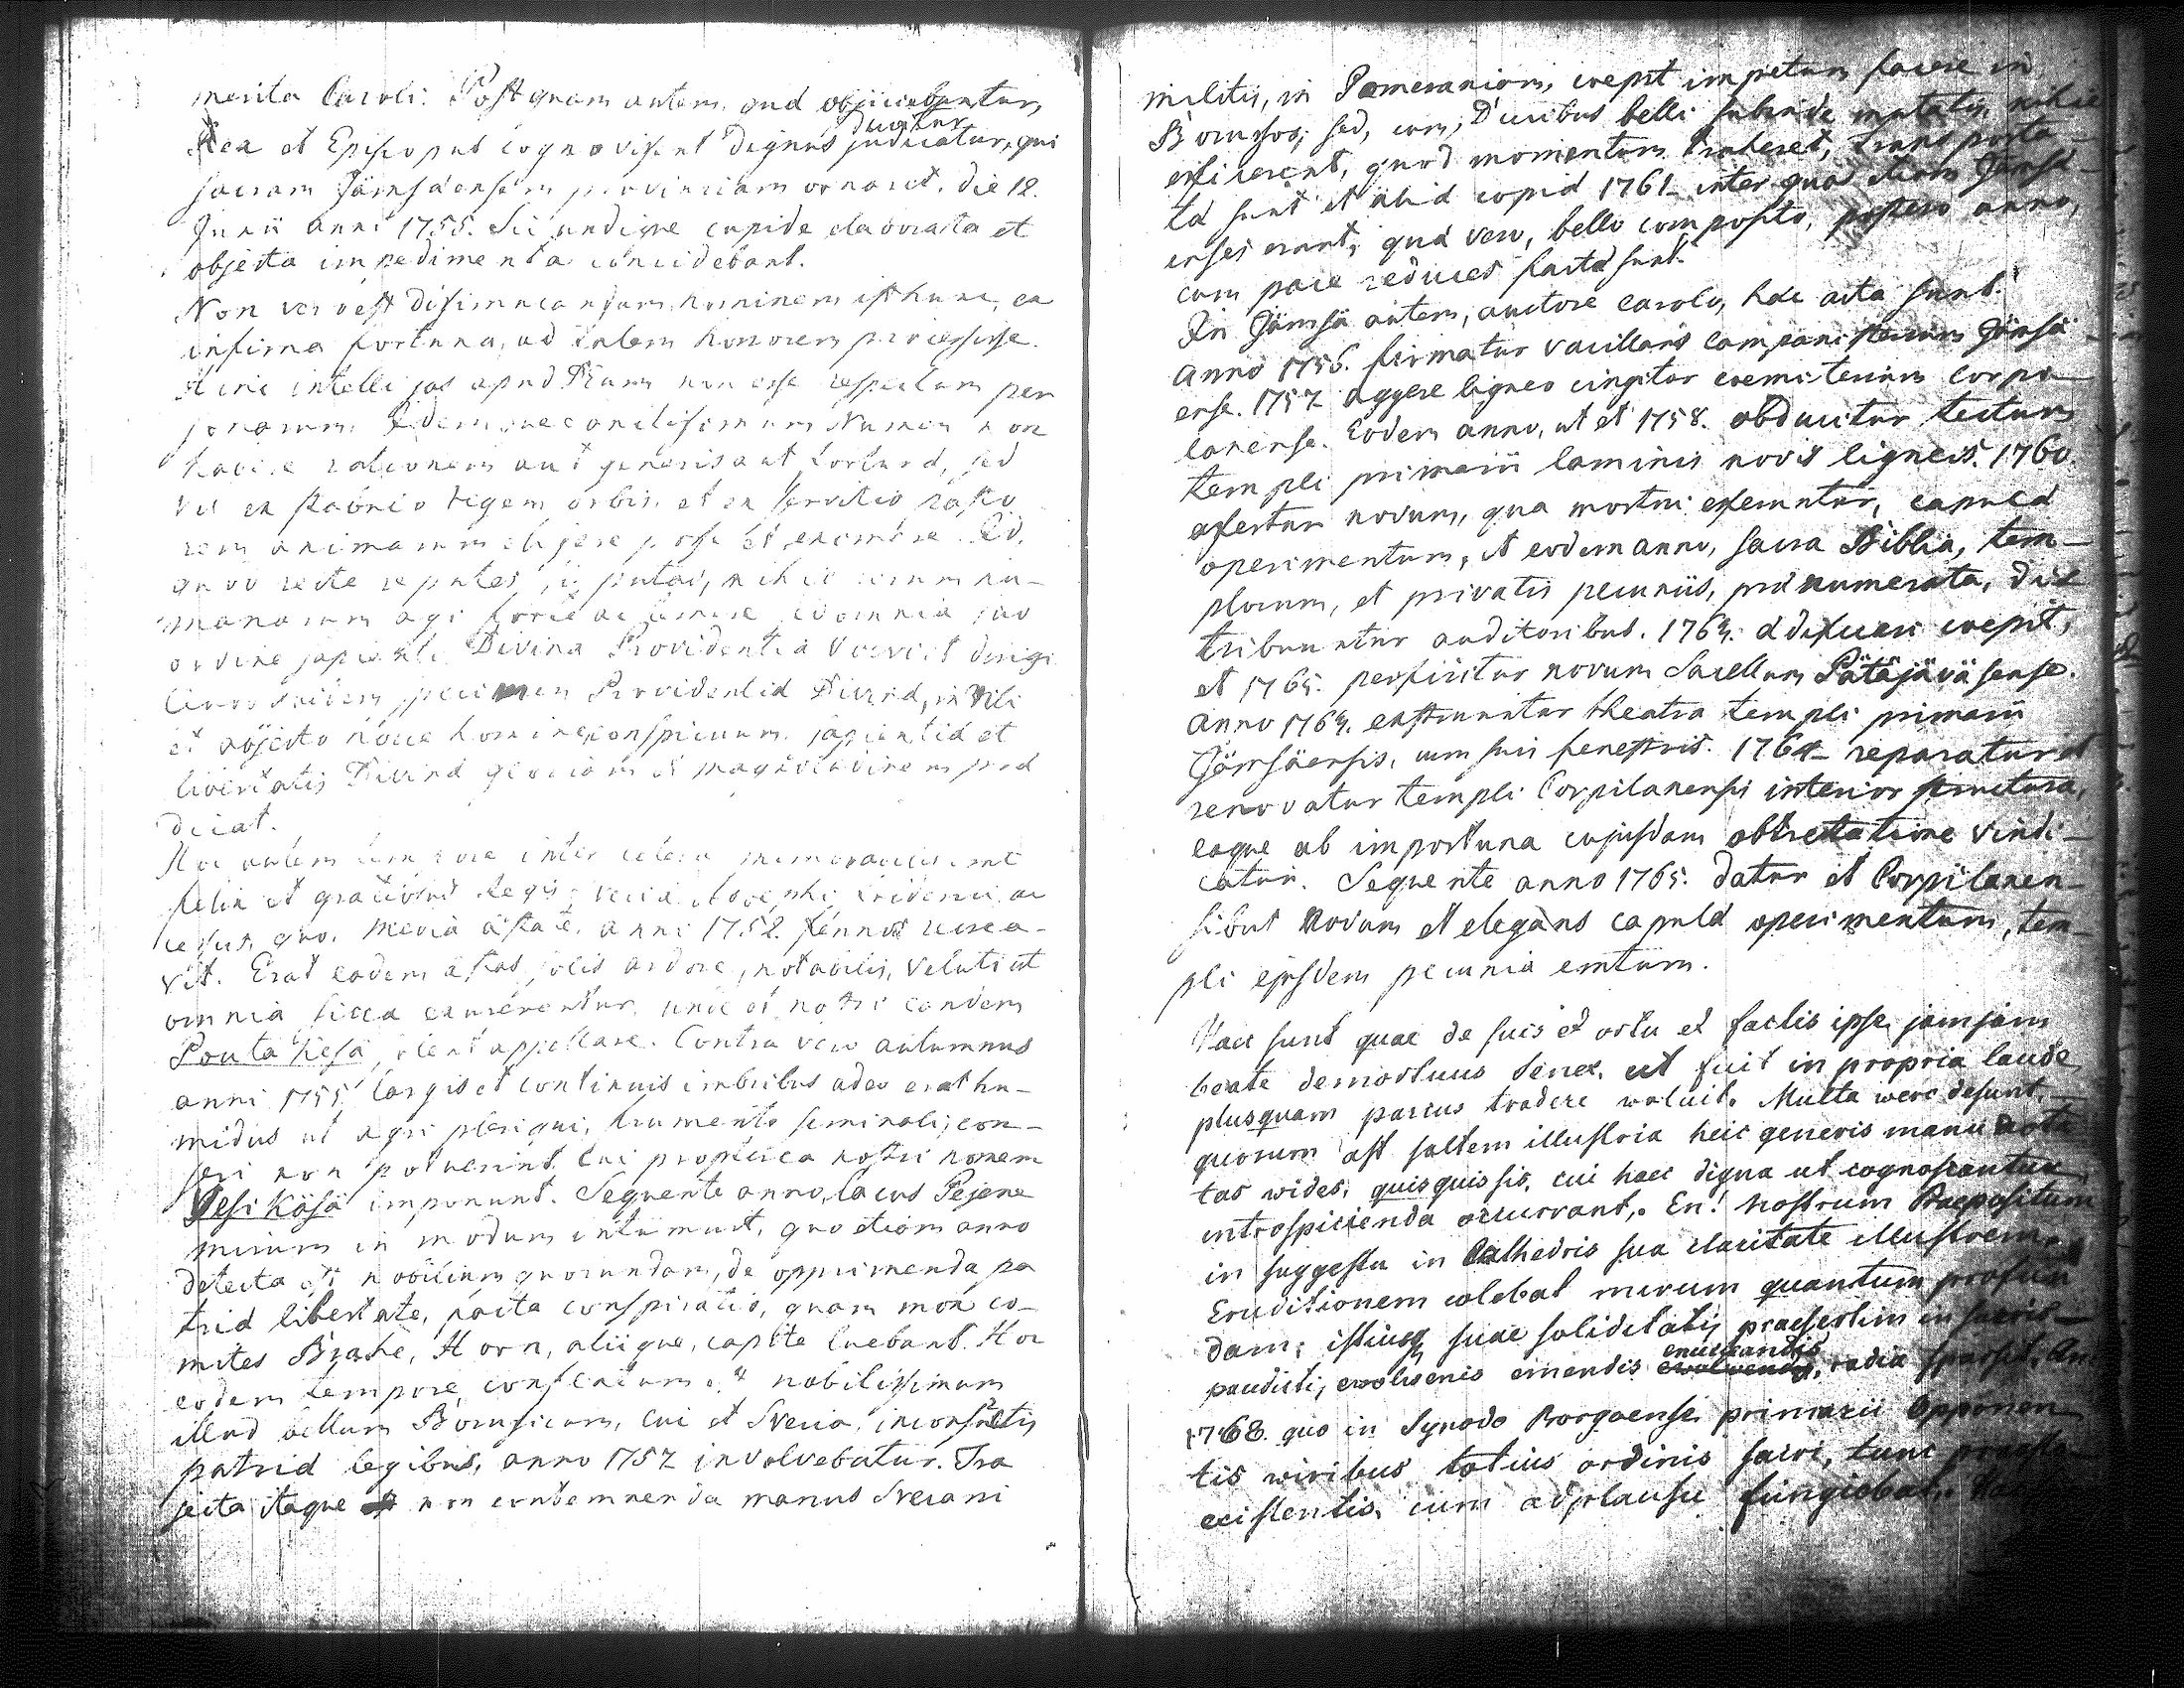 merita Caroli. Postquam autem, quæ objiciebantur,
Rex et Episcopus cognovissent dignus judicatur, qui
ducitur
sacram Jämsäensem provinciam ornaret. die 12.
Junii anni 1755. Sic undique cupide elaborata et
objecta impedimenta concidebant.
Non vero est dissimulandum, hominem isthunc, ex
infima fortuna, ad talem honorem processisse.
Hinc intelligas apud Deum non esse respectum per
sonarum. Idemque Numen non
habere rationem aut generis aut fortunæ, sed
vel ex stabulo regem orbis, et ex servitio pasto
rem animarum eligere posse et Id,
quod recte reputes, si putas, nihil rerum hu-
manarum agi forte ac temere, sed omnia suo
ordine sapienti Divina Providentia dirigi
specimen Providentiæ Divinæ, in vili
et abjecto hocce homine, conspicuum sapientiæ et
libertatis Divinæ gloriam et magnitudinem præ
dicat.
Hoc autem tempore inter cetera memorabilis est
felix et gratiosus Regis, Sveciæ, Adolphi Friderici, ac
cessus, quo, media æstate, anni 1752. fennos recrea-
vit. Erat eadem æstas solis ardore, notabilis, veluti ut
omnia sicca cernerentur, unde et nostri eandem
Pouta kesä, solent appellare. Contra vero autumnus
anni 1755, largis et continuis imbribus adeo erat hu-
midus ut agri plerique, frumento seminali, con-
seri non potuerint. Cui propterea nostri nomen
Vesi Käsä imponunt. Sequente anno, lacus Pejene
mirum in modum intumuit, quo etiam anno
detecta est nobilium quorundam, de opprimenda pa
triæ libertate, facta conspiratio, quam mox co-
mites Brahe, Horn, aliique, capite luebant. Hoc
eodem tempore, conflatum est nobilissimum
illud bellum Borussicum, cui et Svecia, inconsultis
patriæ legibus, anno 1757 involvebatur. Tra
jecta itaque non contemnenda manus Svecani
militis, in Pomeraniam, coepit impetum facere in
Borussos; sed, cum, Ducibus belli subinde mutatis, nihil
efficerent, quod momentum traheret, transporta-
tæ sunt et aliæ copiæ 1761. inter quas etiam Jämsä-
enses erant, quæ vero, bello composito, postero anno,
cum pace reduces factæ sunt.
In Jämsä autem, auctore Carolo, hæc acta sunt.
Anno 1756. firmatur vacillans campanisterium Jämsä
ense. 1757 aggere ligneo cingitur coemiterium Corpi-
lanense. Eodem anno, ut et 1758. obducitur tectum
templi primarii laminis novis ligneis. 1760.
affertur novum, qua mortui efferuntur, capulæ
operimentum, et eodem anno, sacra Biblia, tem-
plorum, et privatis pecuniis, prænumerata, dis
tribuuntur auditoribus. 1764. ædificari coepit,
et 1765. perficitur novum Sacellum Pätäjäväsense.
Anno 1764. exstruuntur theatra templi primarii
Jämsäensis, cum suis fenestris. 1764 reparatur et
renovatur templi Corpilanensis interior structura,
eaque ab importuna cujusdam obtrectatione vindi-
catur. Sequente anno 1765. datur et Corpilanen-
sibus novum et elegans capulæ operimentum, tem-
pli ejusdem pecunia emtum.
Haec sunt quae de suis et ortu et factis ipse, jamjam
beate demortuus Senex, ut fuit in propria laude
plusquam parcus tradere voluit. Multa vero desunt,
quorum ast saltem illustria heic generis manu
tas vides, quisquis sis, cui haec digna ut cognoscantur
introspicienda occurrant. En! nostrum Praepositum
in suggestu in Cathedris sua claritate illustrem,
Eruditionem colebat mirum quantum profun
dam; istiusq suae soliditatis praesertim in sacris
enucleandis
pandicti, emendis evolvendis, radia sparsit. An
1768. quo in Synodo Borgoensi primarii Opponen
tis viribus totius ordinis sacri, tunc
existentis, cum adplausu fungiebat.